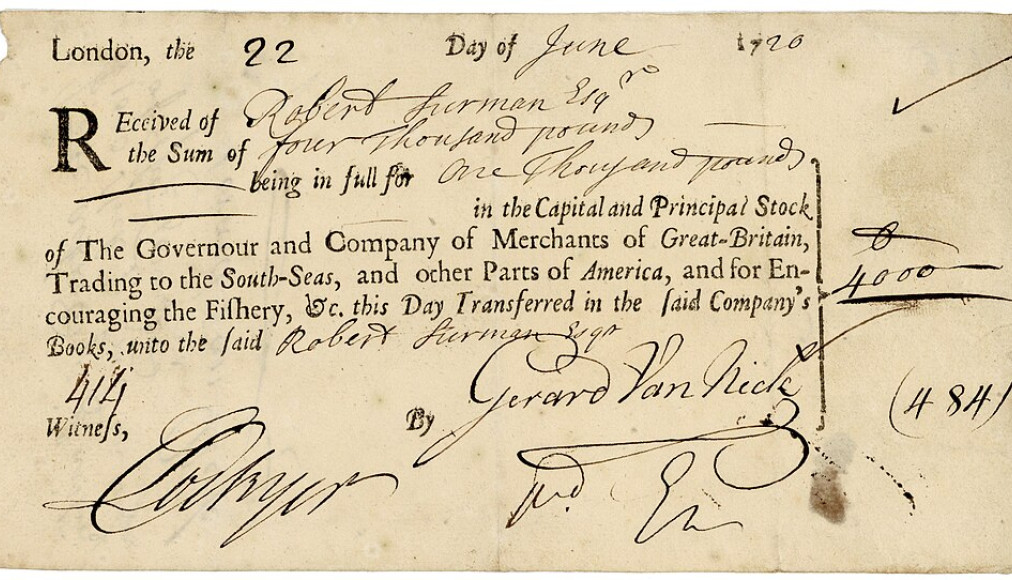 London, the 22 Day of June 1720
Received of Robert Surman Esqr
the Sum of four Thousand pounds
being in full for One Thousand pounds
in the Capital and Principal Stock
of The Governour and Company of Merchants of Great-Britain,
Trading to the South-Seas, and other Parts of America, and for En-
couraging the Fiſhery, &c. this Day Transferred in the ſaid Company's
Books, unto the ſaid Robert Surman Esqr
4000
414
Witneſs,
By Gerard Van Neck
(484)
Lockyer